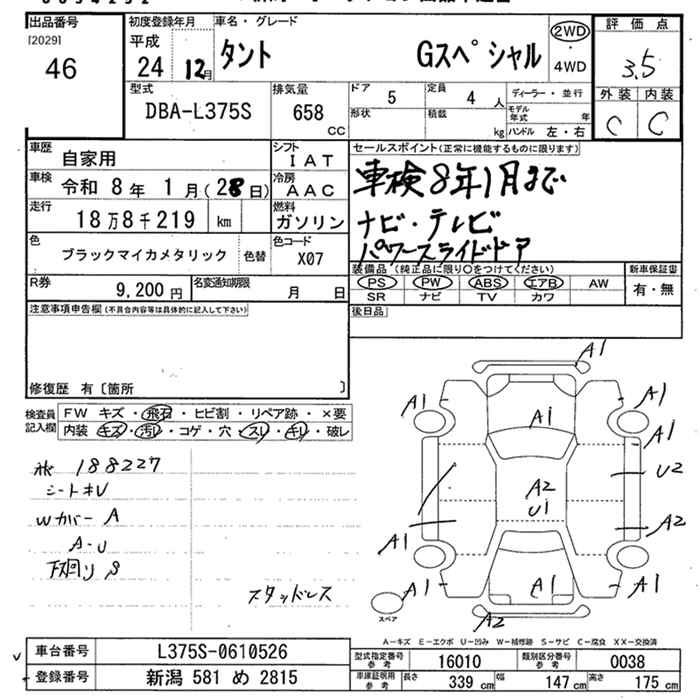 出品番号
[2029]
46
初度登録年月
平成
24 12月
車名・グレード
タント Gスペシャル
2WD
・
4WD
評価点
3.5
外装 内装
C C
型式
DBA-L375S
排気量
658
CC
ドア
5
定員
4 人
形状
積載
kg
ディーラー・並行
モデル年式 年
ハンドル 左・右
車歴
自家用
シフト
IAT
車検
令和 8年 1月(28日)
冷房
AAC
走行
18万8千219 km
燃料
ガソリン
色
ブラックマイカメタリック
色替
色コード
X07
R券
9,200 円
名変通知期限
月 日
セールスポイント(正常に機能するものに限ります)
車検8年1月まで
ナビ・テレビ
パワースライドドア
装備品(純正品に限り○をつけてください)
PS PW ABS エアB AW
SR ナビ TV カワ
新車保証書
有・無
後日品
注意事項申告欄(不具合内容等は具体的に記入して下さい)
修復歴 有〔箇所 〕
検査員
記入欄
FW キズ・飛石・ヒビ割・リペア跡・×要
内装 キズ・汚レ・コゲ・穴・スレ・キレ・破レ
188227
シートキレ
Wカバー A
A-U
下廻り S
スタッドレス
A1
A1
A1
A1
A1
A2
U1
U2
A2
A1
A1
A1
A1
A2
スペア
A-キズ E-エクボ U-凹み W-補修跡 S-サビ C-腐食 XX-交換済
車台番号
L375S-0610526
登録番号
新潟 581 め 2815
型式指定番号
参考
16010
類別区分番号
参考
0038
車庫証明用
参考
長さ 339 cm
幅 147 cm
高さ 175 cm